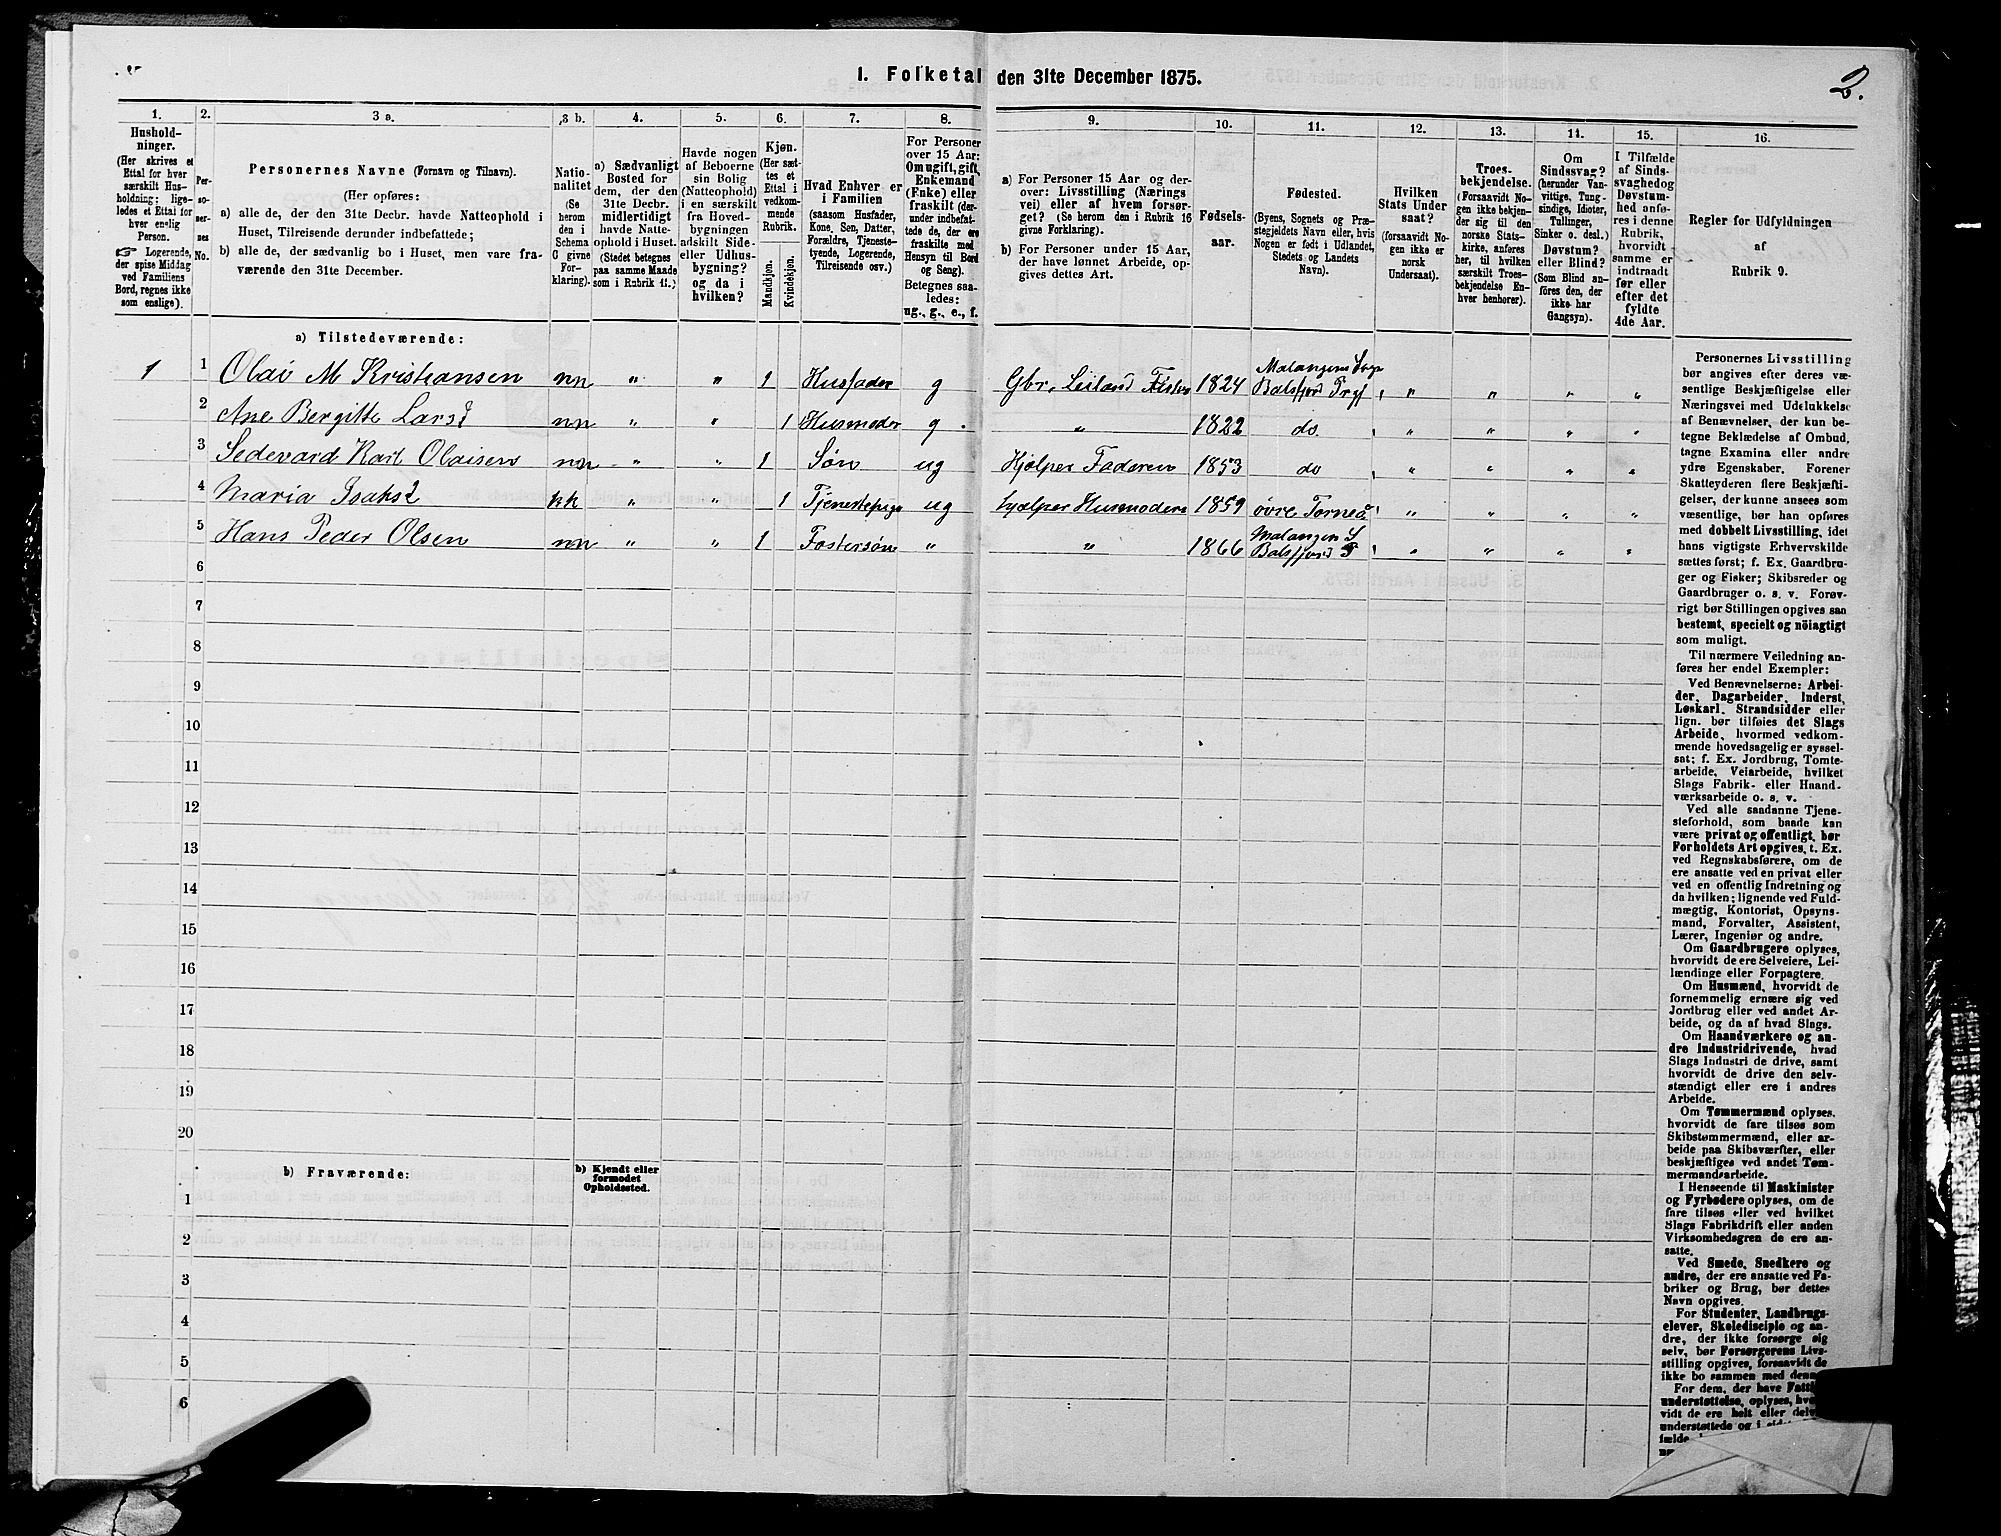 1. Folketal den 31te December 1875.
2.
1. 2. 3 a. 3 b. 4. 5. 6. 7. 8. 9. 10. 11. 12. 13. 14. 15. 16.
Hushold-
ninger.
(Her skrives et
Ettal for hver
særskilt Hus-
holdning; lige-
ledes et Ettal for
hver enslig
Person.
☞ Logerende,
der spise Middag
ved Familiens
Bord, regnes ikke
som enslige).
Per-
so-
ner-
nes
No.
Personernes Navne (Fornavn og Tilnavn).
(Her opføres:
a) alle de, der den 31te Decbr. havde Natteophold i
Huset, Tilreisende derunder indbefattede;
b) alle de, der sædvanlig bo i Huset, men vare fra-
værende den 31te December.
Natio-
nalitet
(Se
herom
den i
Schema
C givne
For-
klaring).
a) Sædvanligt
Bosted for
dem, der den
31te Decbr.
midlertidigt
havde Natte-
ophold i Huset.
(Stedet betegnes
paa samme Maade
som i Rubrik 11.)
Havde nogen
af Beboerne
sin Bolig
(Natteophold)
i en særskilt
fra Hoved-
bygningen
adskilt Side-
eller Udhus-
bygning?
og da i
hvilken?
Kjøn.
(Her sæt-
tes et
Ettal i
vedkom-
mende
Rubrik.
Mandkjøn.
Kvindekjøn.
Hvad Enhver er
i Familien
(saasom Husfader,
Kone, Søn, Datter,
Forældre, Tjeneste-
tyende, Logerende,
Tilreisende osv.)
For Personer
over 15 Aar:
Om ugift, gift,
Enkemand
(Enke) eller
fraskilt (der-
under indbefat-
tede de, der ere
fraskilte med
Hensyn til Bord
og Seng).
Betegnes saa-
ledes:
ug., g., e., f.
a) For Personer 15 Aar og der-
over: Livsstilling (Nærings
vei) eller af hvem forsør-
get? (Se herom den i Rubrik 16
givne Forklaring).
b) For Personer under 15 Aar,
der have lønnet Arbeide, op-
gives dettes Art.
Fødsels-
aar.
Fødested.
(Byens, Sognets og Præ-
stegjeldets Navn eller, hvis
Nogen er født i Udlandet,
Stedets og Landets
Navn).
Hvilken
Stats Under
saat?
(forsaavidt No-
gen ikke er
norsk
Undersaat).
Troes-
bekjendelse.
(Forsaavidt No-
gen ikke bekjen-
der sig til den
norske Stats-
kirke, anføres
her, til hvilken
særskilt Troes-
bekjendelse En-
hver henhører).
Om
Sindssvag?
(herunder Van-
vittige, Tung-
sindige, Idioter,
Tullinger,
Sinker o. desl.)
Døvstum?
eller Blind?
(Som Blind an-
føres den, der
ikke har
Gangsyn).
I Tilfælde
af Sinds-
svaghed og
Døvstum-
hed anfø-
res i denne
Rubrik,
hvorvidt
samme er
indtraadt
før eller
efter det
fyldte
4de Aar.
Regler for Udfyldningen
af
Rubrik 9.
a) Tilstedeværende:
1 1 Olai M Kristiansen nn " " 1 Husfader g Gbr. Leiland Fisker 1824 Malangens Sogn Balsfjord Prgj " " " "
2 Ane Bergitte Larsd nn " " 1 Husmoder g " 1822 do. " " " "
3 Sedevard Karl Olaisen nn " " 1 Søn ug Hjælper Faderen 1853 do " " " "
4 Maria Isaksd kk " " 1 Tjenestepige ug hjælper Husmoderen 1859 øvre Torneå " " " "
5 Hans Peder Olsen nn " " 1 Fostersøn " " 1866 Malangen S Balsfjord P " " " "
6
7
8
9
10
11
12
13
14
15
16
17
18
19
20
b) Fraværende:
b) Kjendt eller
formodet
Opholdssted.
1
2
3
4
5
6
Personernes Livsstilling
bør angives efter deres væ-
sentlige Beskjæftigelse eller
Næringsvei med Udelukkelse
af Benævnelser, der kun be-
tegne Beklædelse af Ombud,
tagne Examina eller andre
ydre Egenskaber. Forener
Skatteyderen flere Beskjæfti-
gelser, der kunne ansees som
væsentlige, bør han opføres
med dobbelt Livsstilling, idet
hans vigtigste Erhvervskilde
sættes først; f. Ex. Gaardbru-
ger og Fisker; Skibsreder og
Gaardbruger o. s. v. Forøv-
rigt bør Stillingen opgives saa
bestemt, specielt og nöiagtigt
som muligt.
Til nærmere Veiledning an-
føres her endel Exempler:
Ved Benævnelserne: Arbei-
der, Dagarbeider, Inderst,
Løskarl, Strandsidder eller
lign. bør tilføies det Slags
Arbeide, hvormed vedkom-
mende hovedsagelig er syssel-
sat; f. Ex. Jordbrug, Tomte-
arbeide, Veiarbeide, hvilket
Slags Fabrik- eller Haand-
værksarbeide o. s. v.
Ved alle saadanne Tjene-
steforhold, som baade kan
være privat og offentligt, bør
Forholdets Art opgives, f. Ex.
ved Regnskabsførere, om de
ere ansatte ved en privat eller
ved en offentlig Indretning og
da hvilken; lignende ved Fuld-
mægtig, Kontorist, Opsyns-
mand, Forvalter, Assistent,
Lærer, Ingeniør og andre.
Om Gaardbrugere oplyses,
hvorvidt de ere Selveiere, Lei-
lændinge eller Forpagtere.
Om Husmænd, hvorvidt de
fornemmelig ernære sig ved
Jordbrug eller ved andet Ar-
beide, og da af hvad Slags.
Om Haandværkere og an-
dre Industridrivende, hvad
Slags Industri de drive, samt
hvorvidt de drive den selv-
stændigt eller ere i andres
Arbeide.
Om Tømmermænd oplyses,
hvorvidt de fare tilsøs som
Skibstømmermænd, eller ar-
beide paa Skibsværfter, eller
beskjæftiges ved andet Tøm-
mermandsarbeide.
I Henseende til Maskinister
og Fyrbødere oplyses, om de
fare tilsøs eller ved hvilket
Slags Fabrikdrift eller anden
Virksomhedsgren de ere an-
satte.
Ved Smede, Snedkere og
andre, der ere ansatte ved Fa-
briker og Brug, bør dettes
Navn opgives.
For Studenter, Landbrugs-
elever, Skoledisciple og an-
dre, der ikke forsørge sig
selv, bør Forsørgerens Livs-
stilling opgives, forsaavidt de
ikke bo sammen med denne.
For dem, der have Fattig-
understøttelse, oplyses, hvor-
vidt de ere helt eller delvis
understøttede og i